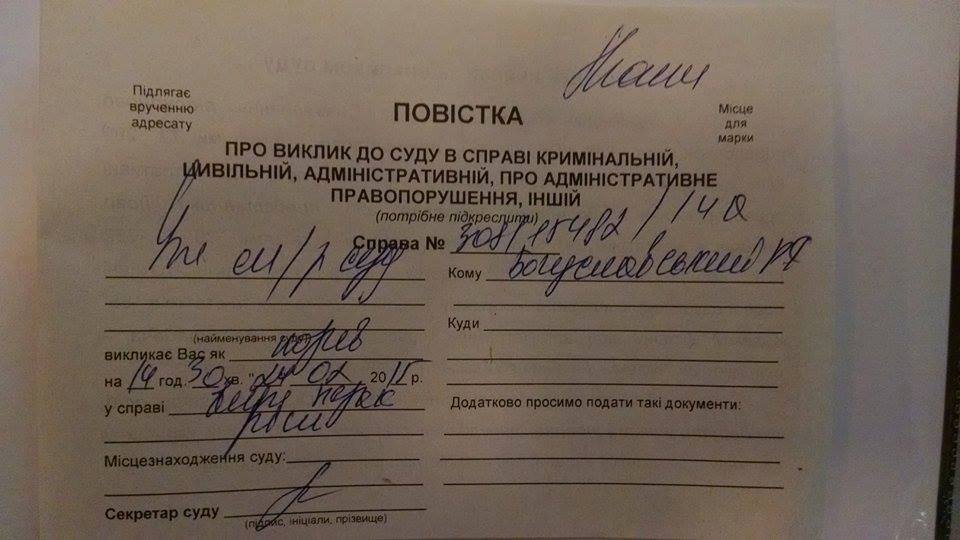 Підлягає
врученню
адресату
ПОВІСТКА
Місце
для
марки
ПРО ВИКЛИК ДО СУДУ В СПРАВІ КРИМІНАЛЬНІЙ,
ЦИВІЛЬНІЙ, АДМІНІСТРАТИВНІЙ, ПРО АДМІНІСТРАТИВНЕ
ПРАВОПОРУШЕННЯ, ІНШІЙ
(потрібне підкреслити)
Справа № 308/15482/14 а
м/р суду
(найменування суду)
викликає Вас як
на 14 год. 30 хв. " 02 2015 р.
у справі
Місцезнаходження суду:
Секретар суду
(підпис, ініціали, прізвище)
Кому Богуславський
Куди
Додатково просимо подати такі документи: